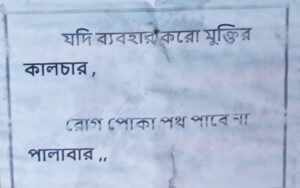 যদি ব্যবহার করো মুক্তির
কালচার,
রোগ পোকা পথ পাবে না
পালাবার,,